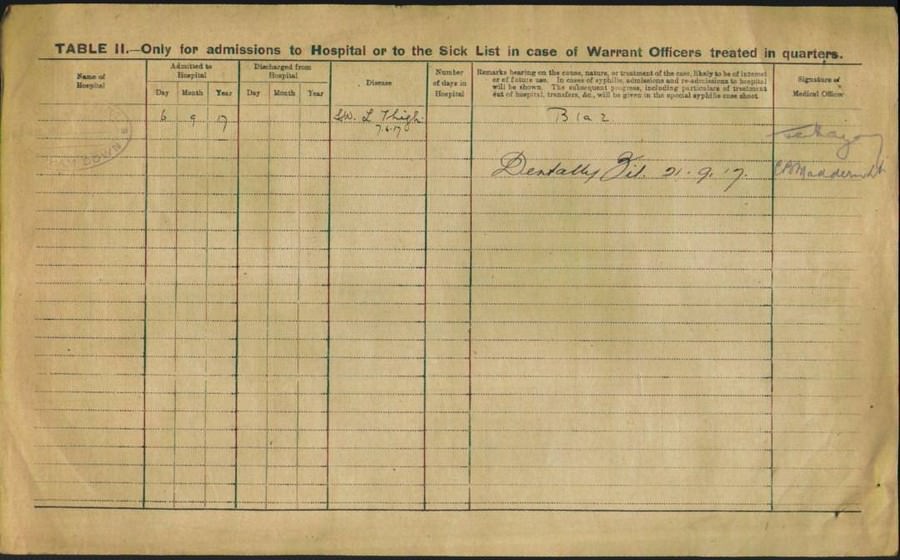 TABLE II.—Only for admissions to Hospital or to the Sick List in case of Warrant Officers treated in quarters.
Name of Hospital
Admitted to Hospital
Day Month Year
Discharged from Hospital
Day Month Year
Disease
Number of days in Hospital
Remarks bearing on the cause, nature, or treatment of the case, likely to be of interest
or of future use. In cases of syphilis, admissions and re-admissions to hospital
will be shown. The subsequent progress, including particulars of treatment
out of hospital, transfers, &c., will be given in the special syphilis case sheet
Signature of Medical Officer
6 9 17
L Thigh
7.6.17
B 1a 2
DOWN
Dentally Fit. 21.9.17.